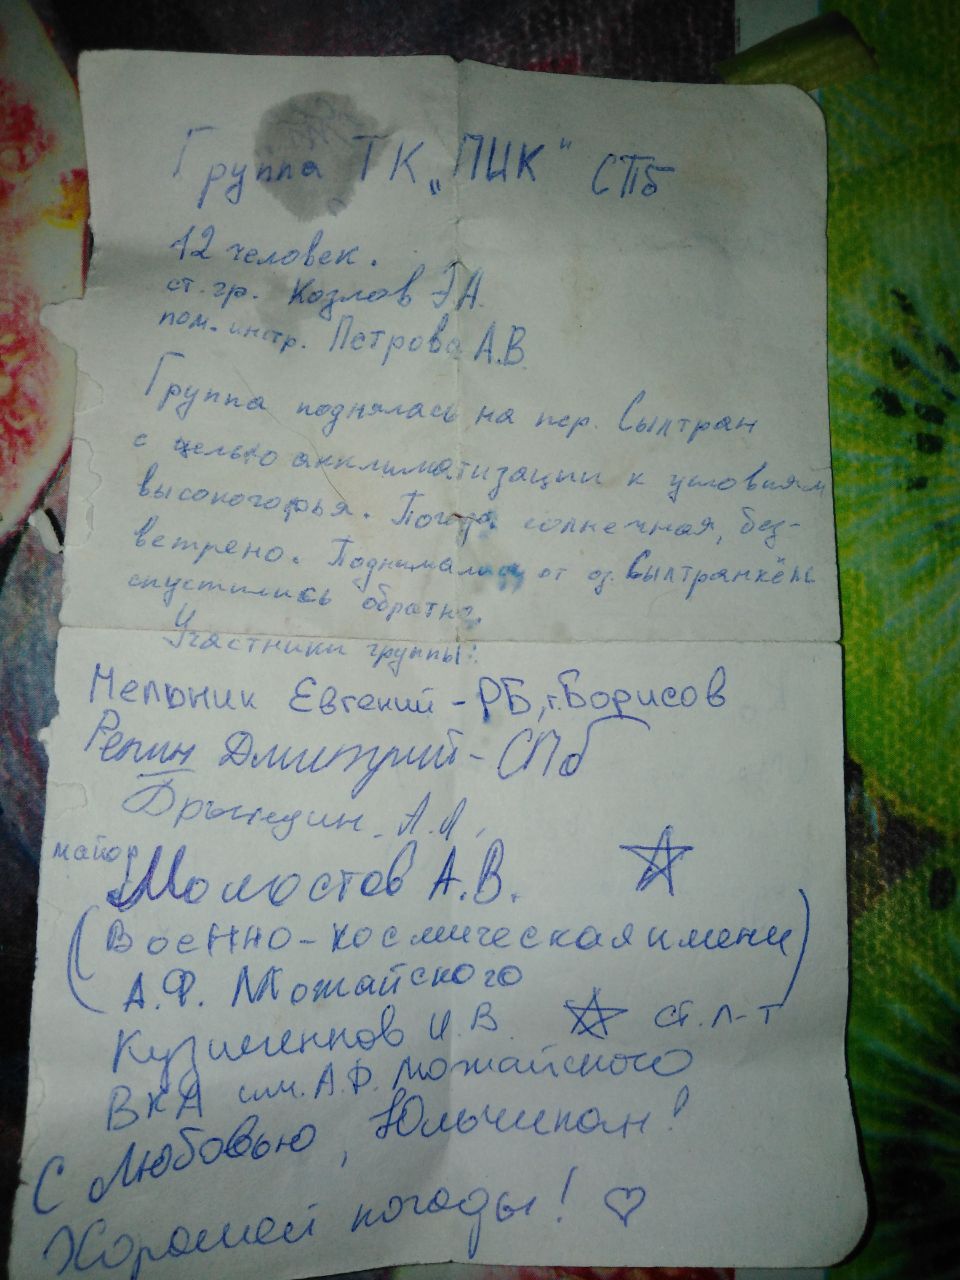 Группа ТК „ПИК" СПб
12 человек.
ст. гр. Козлов Г.А.
пом. инстр. Петрова А.В.
Группа поднялась на пер. Сылтран
с целью акклиматизации к условиям
высокогорья. Погода солнечная, без-
ветрено. Поднимались от оз. Сылтранкёль
спустились обратно.
Участники группы:
Мельник Евгений - РБ, г. Борисов
Репин Дмитрий - СПб
А.А.
майор
Молостов А.В.
(Военно-космическая имени
А.Ф. Можайского)
Кузьменков И.В. ст. л-т
ВКА им. А.Ф. Можайского
С Любовью, Юльчикон!
Хорошей погоды! ♡